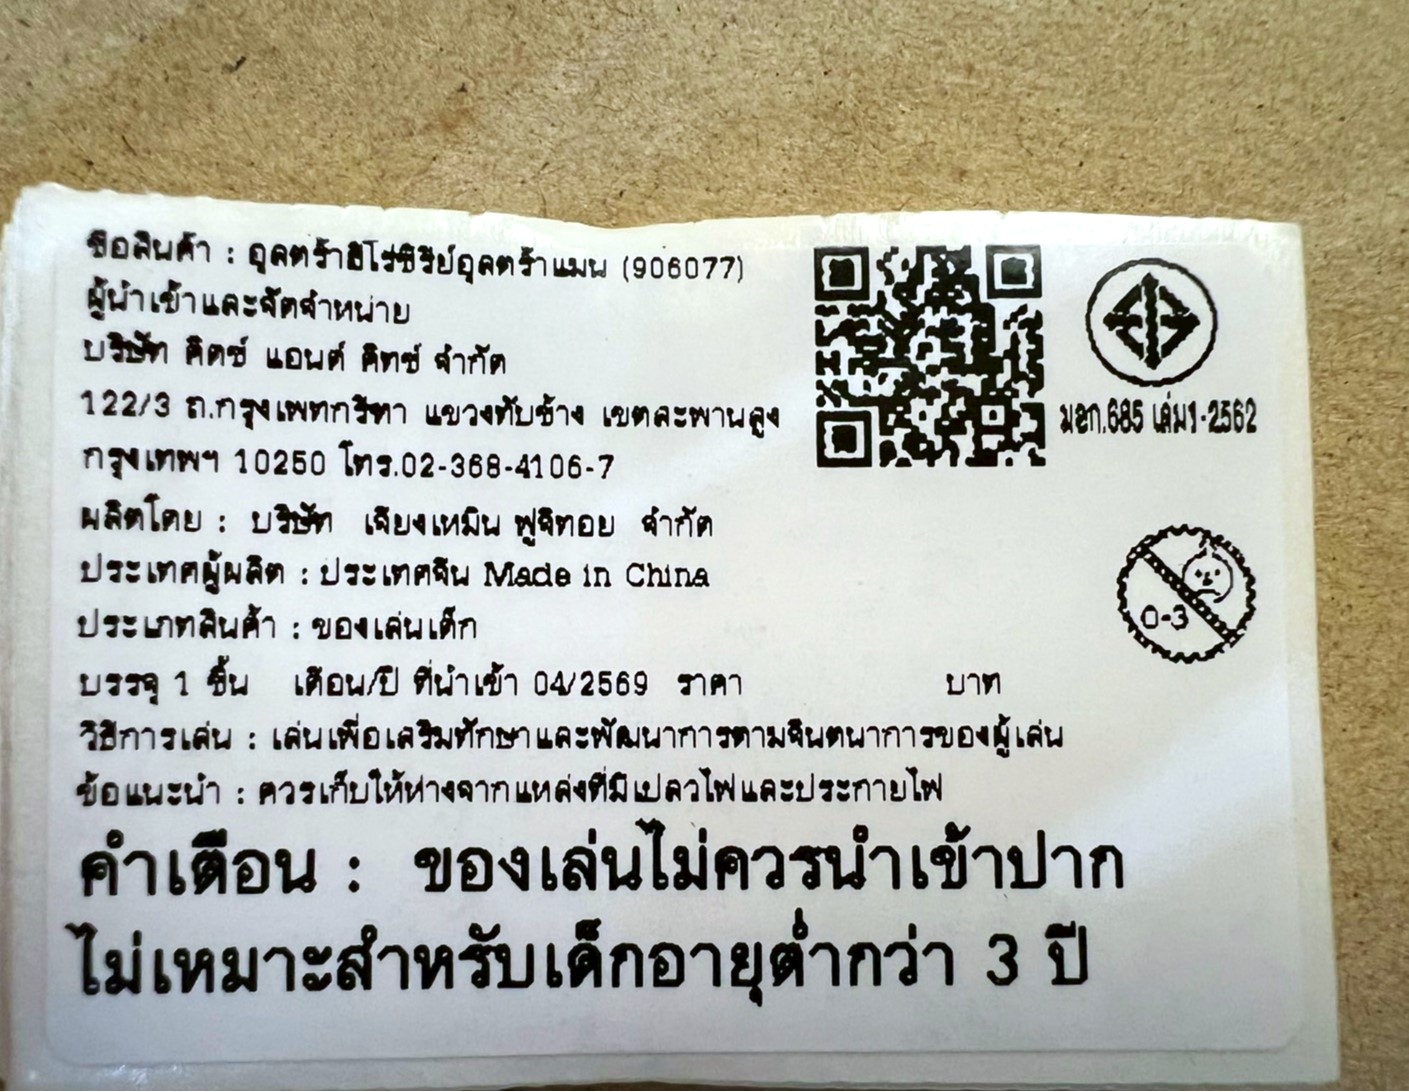 ชื่อสินค้า : อุลตร้าฮีโร่ซีรีย์อุลตร้าแมน (906077)
ผู้นำเข้าและจัดจำหน่าย
บริษัท คิดซ์ แอนด์ คิทซ์ จำกัด
122/3 ถ.กรุงเทพกรีฑา แขวงทับช้าง เขตสะพานสูง
กรุงเทพฯ 10250 โทร.02-368-4106-7
ผลิตโดย : บริษัท เจียงเหมิน ฟูจิทอย จำกัด
ประเทศผู้ผลิต : ประเทศจีน Made in China
ประเภทสินค้า : ของเล่นเด็ก
บรรจุ 1 ชิ้น เดือน/ปี ที่นำเข้า 04/2569 ราคา บาท
วิธีการเล่น : เล่นเพื่อเสริมทักษาและพัฒนาการตามจินตนาการของผู้เล่น
ข้อแนะนำ : ควรเก็บให้ห่างจากแหล่งที่มีเปลวไฟและประกายไฟ
คำเตือน : ของเล่นไม่ควรนำเข้าปาก
ไม่เหมาะสำหรับเด็กอายุต่ำกว่า 3 ปี
มอก.685 เล่ม1-2562
0-3